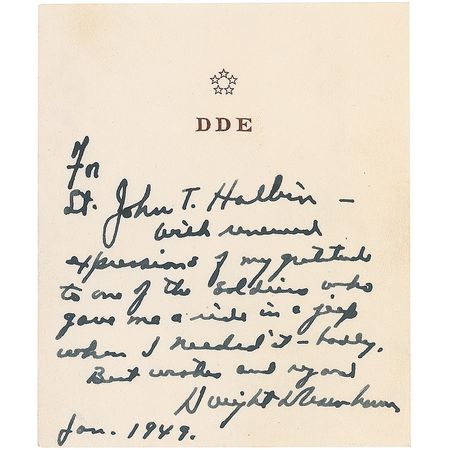 DDE
For
Lt. John T. Halbin -
with renewed
expressions of my gratitude
to one of the soldiers who
gave me a ride in a jeep
when I needed it - badly.
Best wishes and regard
Dwight D Eisenhower
Jan. 1949.